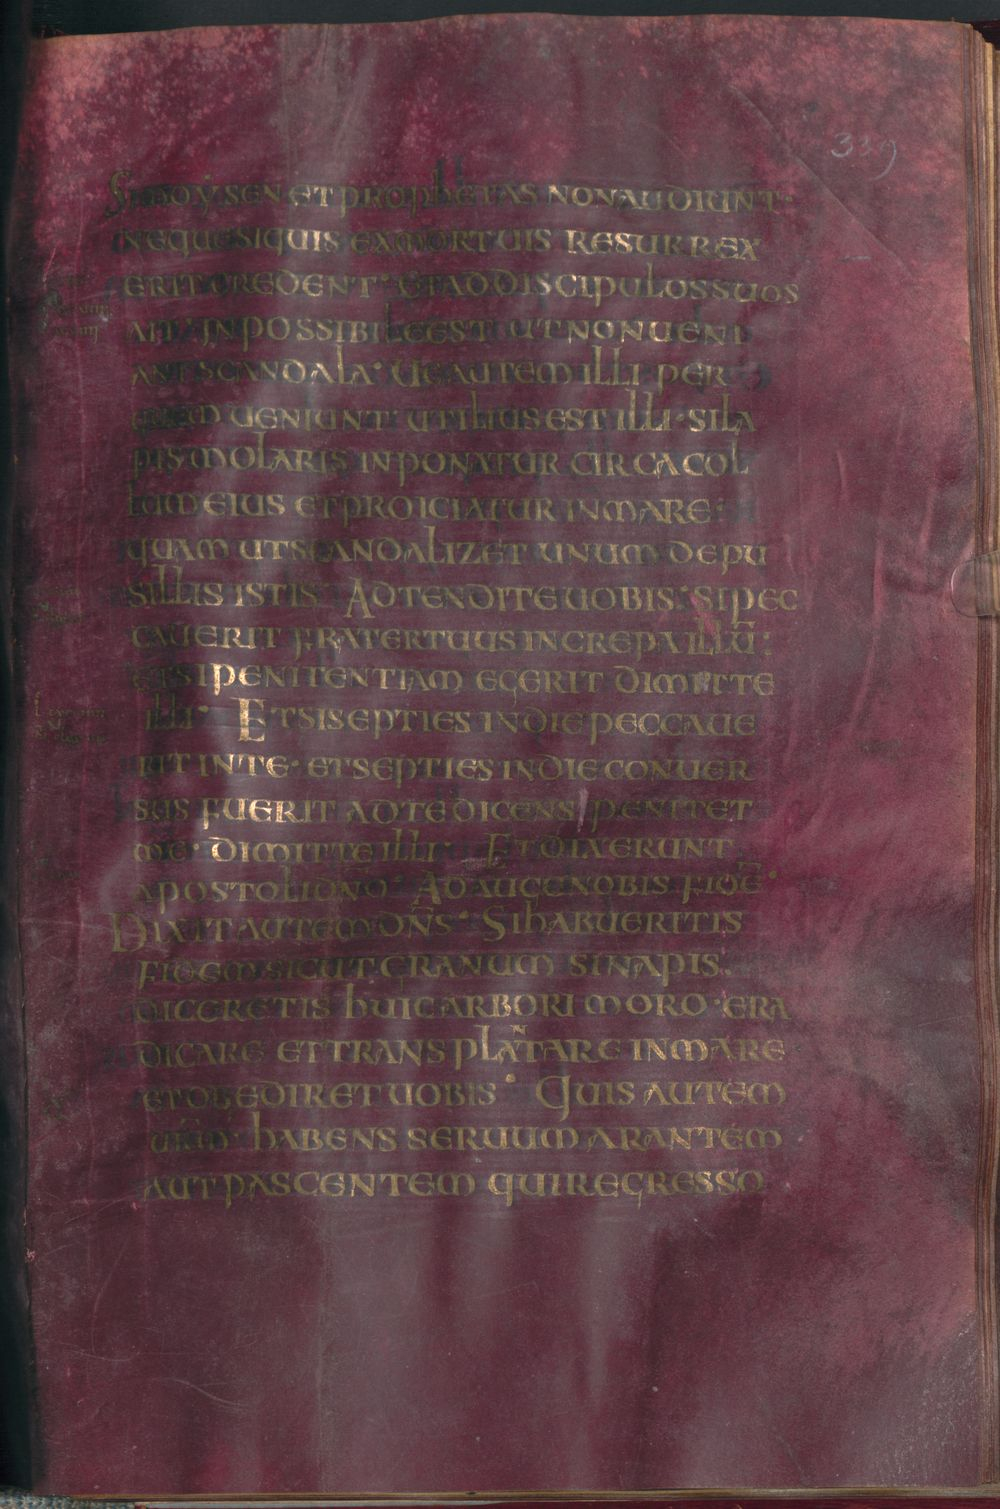 339
SIMOYSEN ET PROPHETAS NON AUDIUNT·
NEQUE SI QUIS EX MORTUIS RESURREX
ERIT CREDENT· ET AD DISCIPULOS SUOS
AIT· INPOSSIBILE EST UT NON UENI
ANT SCANDALA· UE AUTEM ILLI PER
QUEM UENIUNT· UTILIUS EST ILLI· SI LA
PIS MOLARIS INPONATUR CIRCA COL
LUM EIUS ET PROICIATUR IN MARE·
QUAM UT SCANDALIZET UNUM DE PU
SILLIS ISTIS· ADTENDITE UOBIS· SI PEC
CAUERIT FRATER TUUS INCREPA ILLŪ:
ET SI PENITENTIAM EGERIT DIMITTE
ILLI· ET SI SEPTIES IN DIE PECCAUE
RIT IN TE· ET SEPTIES IN DIE CONUER
SUS FUERIT AD TE DICENS PENITET
ME· DIMITTE ILLI· ET DIXERUNT
APOSTOLI DNO· ADAUGE NOBIS FIDĒ·
DIXIT AUTEM DN̄S· SI HABUERITIS
FIDEM SICUT GRANUM SINAPIS·
DICERETIS HUIC ARBORI MORO· ERA
DICARE ET TRANSPLANTARE IN MARE
ET OBEDIRET UOBIS· QUIS AUTEM
UR̄M· HABENS SERUUM ARANTEM
AUT PASCENTEM QUI REGRESSO